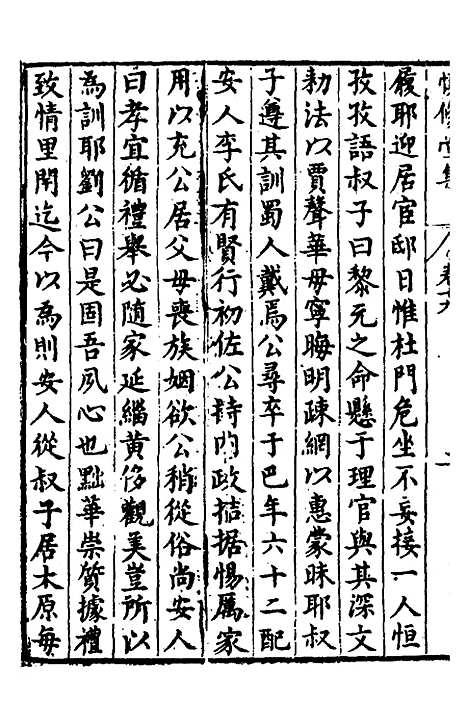 慎修堂集　卷十九
履耶迎居宦邸日惟杜門危坐不妄接一人恒
孜孜語叔子曰黎元之命懸于理官與其深文
勑法以賈聲華毋寧晦明疎網以惠蒙昧耶叔
子遵其訓蜀人戴焉公尋卒于巴年六十二配
安人李氏有賢行初佐公持内政拮据惕厲家
用以充公居父母喪族姻欲公稍從俗尚安人
曰孝宜循禮舉必隨家延緇黄侈觀美豈所以
為訓耶劉公曰是固吾夙心也黜華崇質據禮
致情里閈迄今以為則安人從叔子居木原每